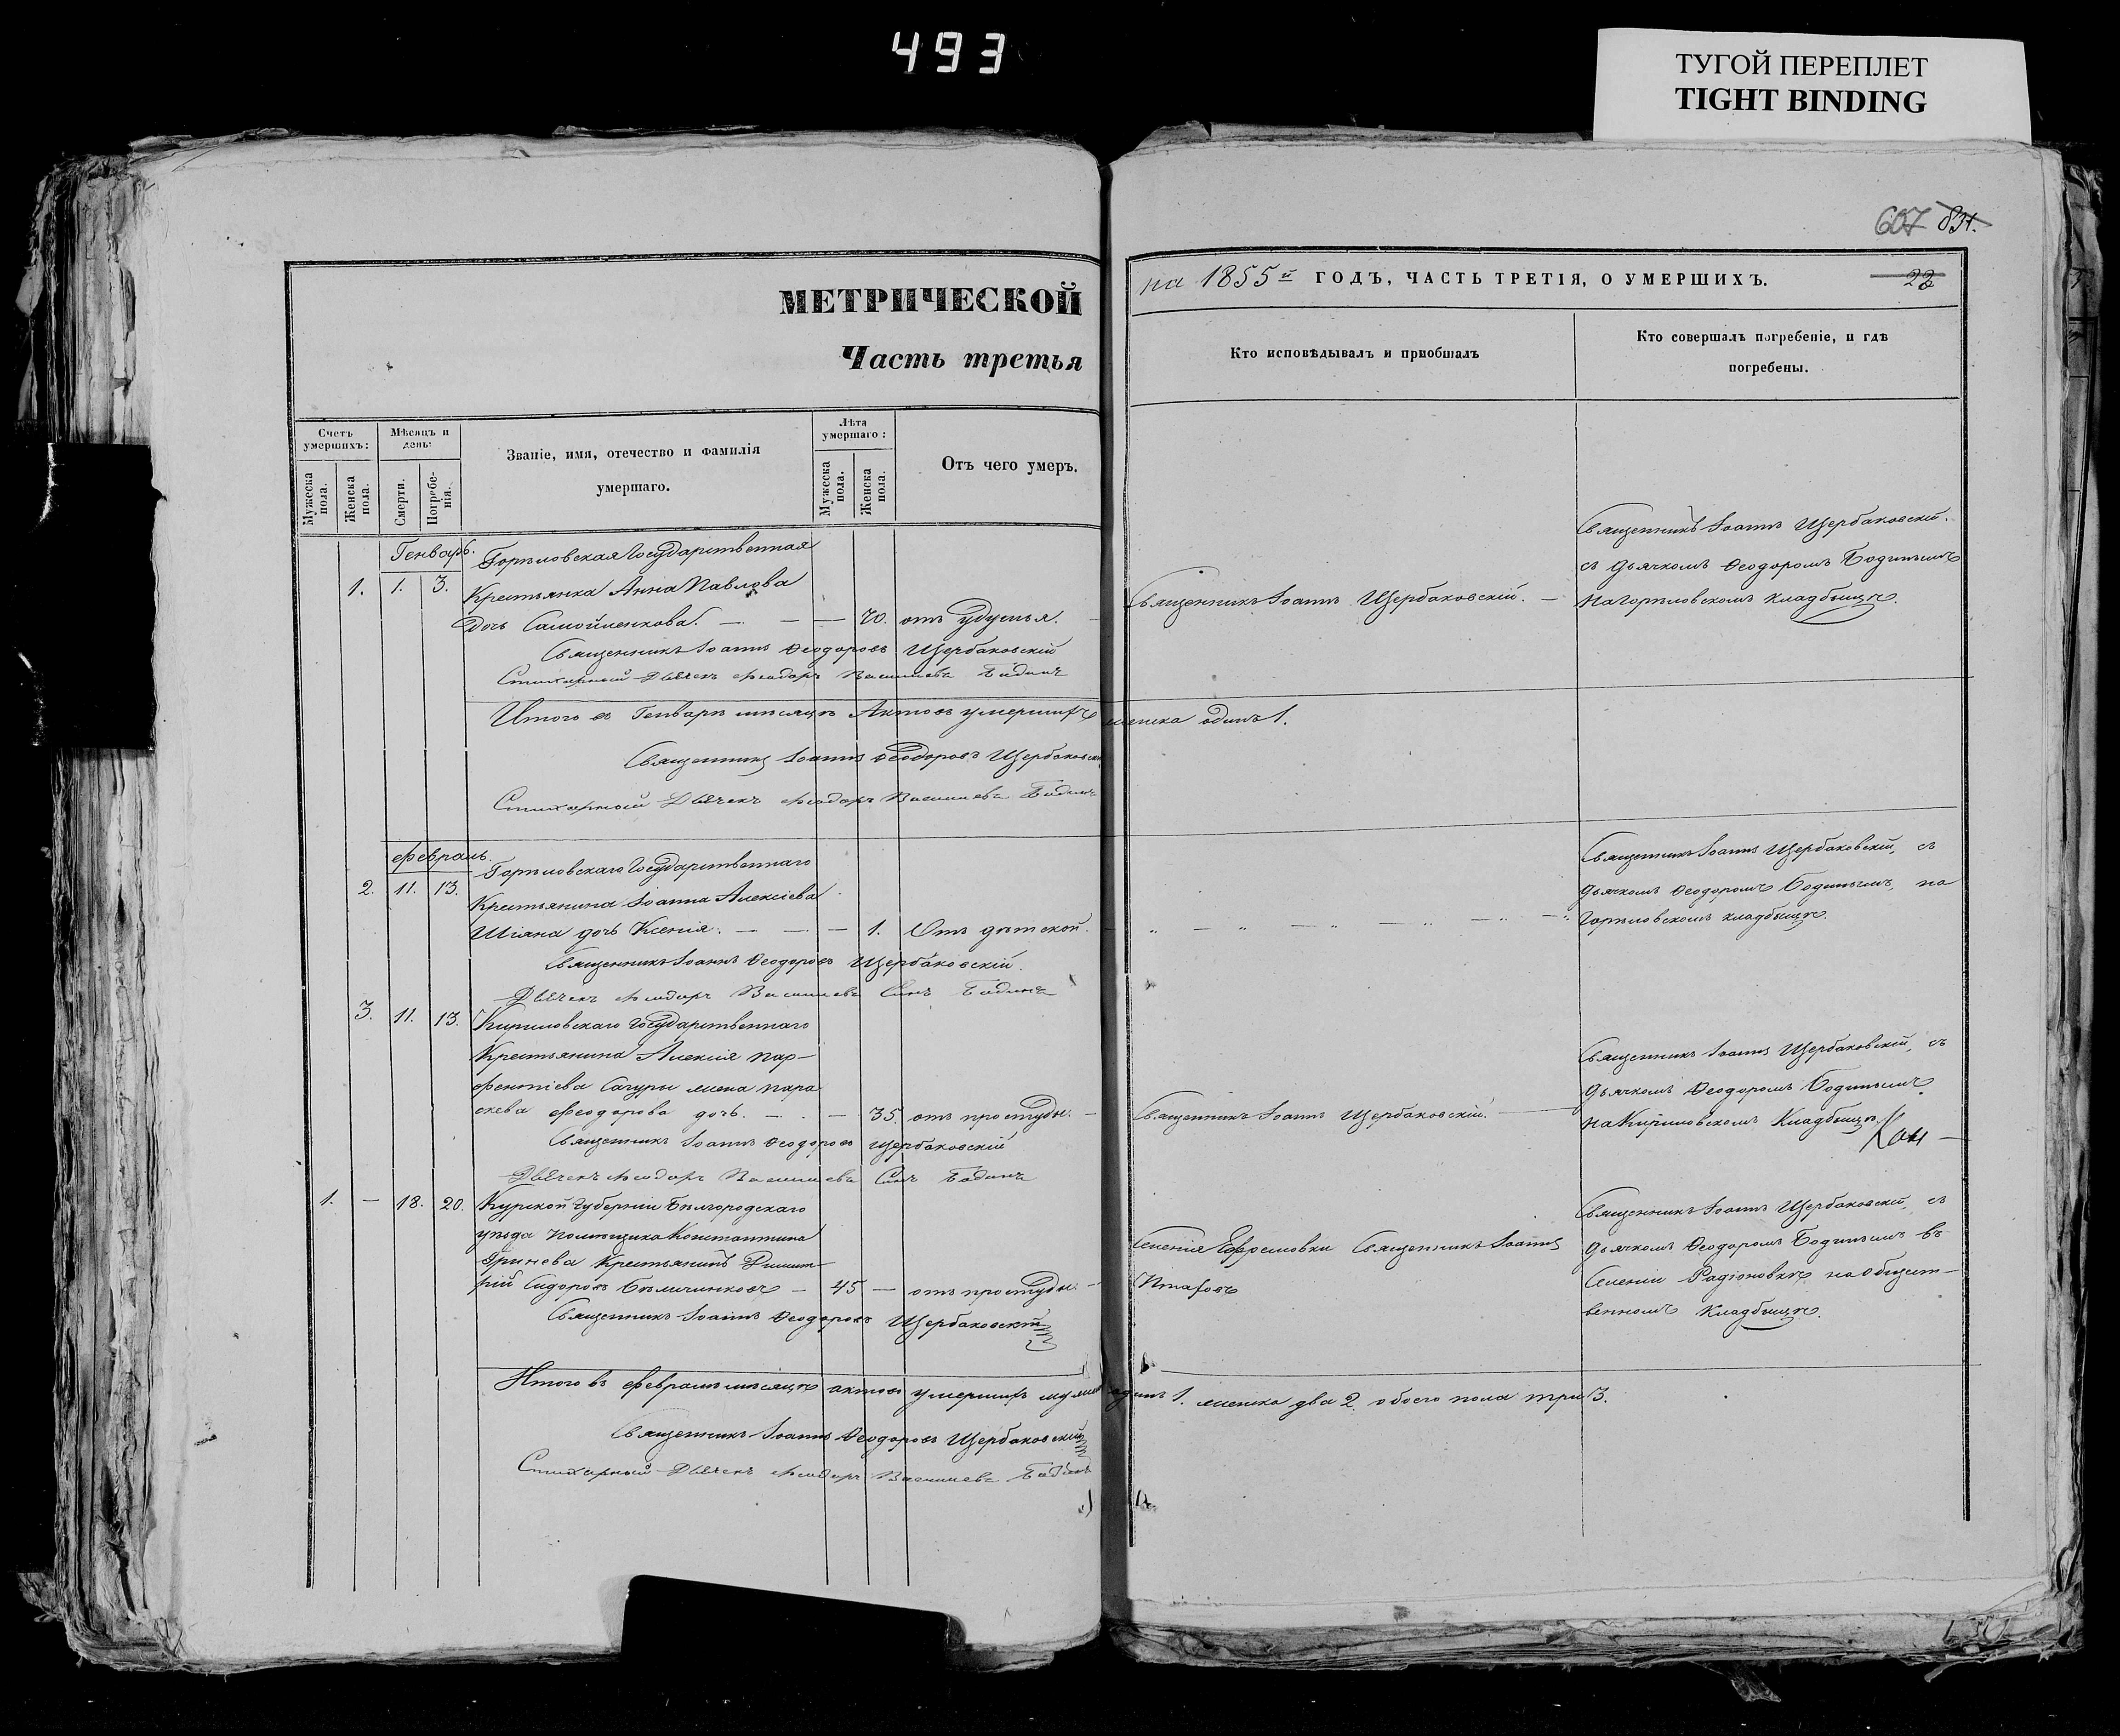 493
ТУГОЙ ПЕРЕПЛЕТ
TIGHT BINDING
607 831.
МЕТРИЧЕСКОЙ
Часть третья
на 1855й ГОДЪ, ЧАСТЬ ТРЕТІЯ, О УМЕРШИХЪ.
Счетъ умершихъ:
Мужеска пола.
Женска пола.
Мѣсяцъ и день:
Смерти.
Погребенія.
Званіе, имя, отечество и фамилія
умершаго.
Лѣта умершаго:
Мужеска пола.
Женска пола.
Отъ чего умеръ.
Кто исповѣдывалъ и пріобщалъ
Кто совершалъ погребеніе, и гдѣ
погребены.
Генварь.
1. 1. 3.
Горѣловская Государственная
Крестьянка Анна Павлова
дочь Самойленкова. — 70. отъ удушья.
Священникъ Іоаннъ Щербаковскій.
Священникъ Іоаннъ Щербаковскій.
съ дьячкомъ Ѳеодоромъ Бодинымъ
на Горѣловскомъ кладбищѣ.
Священникъ Іоаннъ Ѳеодоровъ Щербаковскій
Стихарный Дьячекъ Феодоръ Васильевъ Бодинъ
Итого въ Генварѣ мѣсяцѣ Актовъ умершихъ женска одинъ 1.
Священникъ Іоаннъ Ѳеодоровъ Щербаковскій
Стихарный Дьячекъ Феодоръ Васильевъ Бодинъ
Февраль.
2. 11. 13.
Горѣловскаго Государственнаго
Крестьянина Іоанна Алексіева
Шіяна дочь Ксенія. — 1. Отъ дѣтской.
Священникъ Іоаннъ Щербаковскій, съ
дьячкомъ Ѳеодоромъ Бодинымъ, на
Горѣловскомъ кладбищѣ.
Священникъ Іоаннъ Ѳеодоровъ Щербаковскій.
Дьячекъ Феодоръ Васильевъ Сынъ Бодинъ
3. 11. 13.
Кириловскаго Государственнаго
Крестьянина Алексія Пар-
фентіева Сагуры жена Пара
скева Феодорова дочь. — 35. отъ простуды.
Священникъ Іоаннъ Щербаковскій.
Священникъ Іоаннъ Щербаковскій, съ
дьячкомъ Ѳеодоромъ Бодинымъ
на Кириловскомъ Кладбищѣ
Священникъ Іоаннъ Ѳеодоровъ Щербаковскій
Дьячекъ Феодоръ Васильевъ Сынъ Бодинъ
1. — 18. 20.
Курской Губерніи Бѣлгородскаго
уѣзда помѣщика Константина
Гринева Крестьянинъ Димит-
рій Сидоровъ — 45 — отъ простуды.
Селенія Ефремовки Священникъ Іоаннъ
Священникъ Іоаннъ Щербаковскій, съ
дьячкомъ Ѳеодоромъ Бодинымъ въ
Селеніи Радіоновкѣ на общест-
венномъ Кладбищѣ.
Священникъ Іоаннъ Ѳеодоровъ Щербаковскій
Итого въ Февралѣ мѣсяцѣ актовъ умершихъ мужеска одинъ 1. женска два 2. обоего пола три 3.
Священникъ Іоаннъ Ѳеодоровъ Щербаковскій
Стихарный Дьячекъ Феодоръ Васильевъ Бодинъ